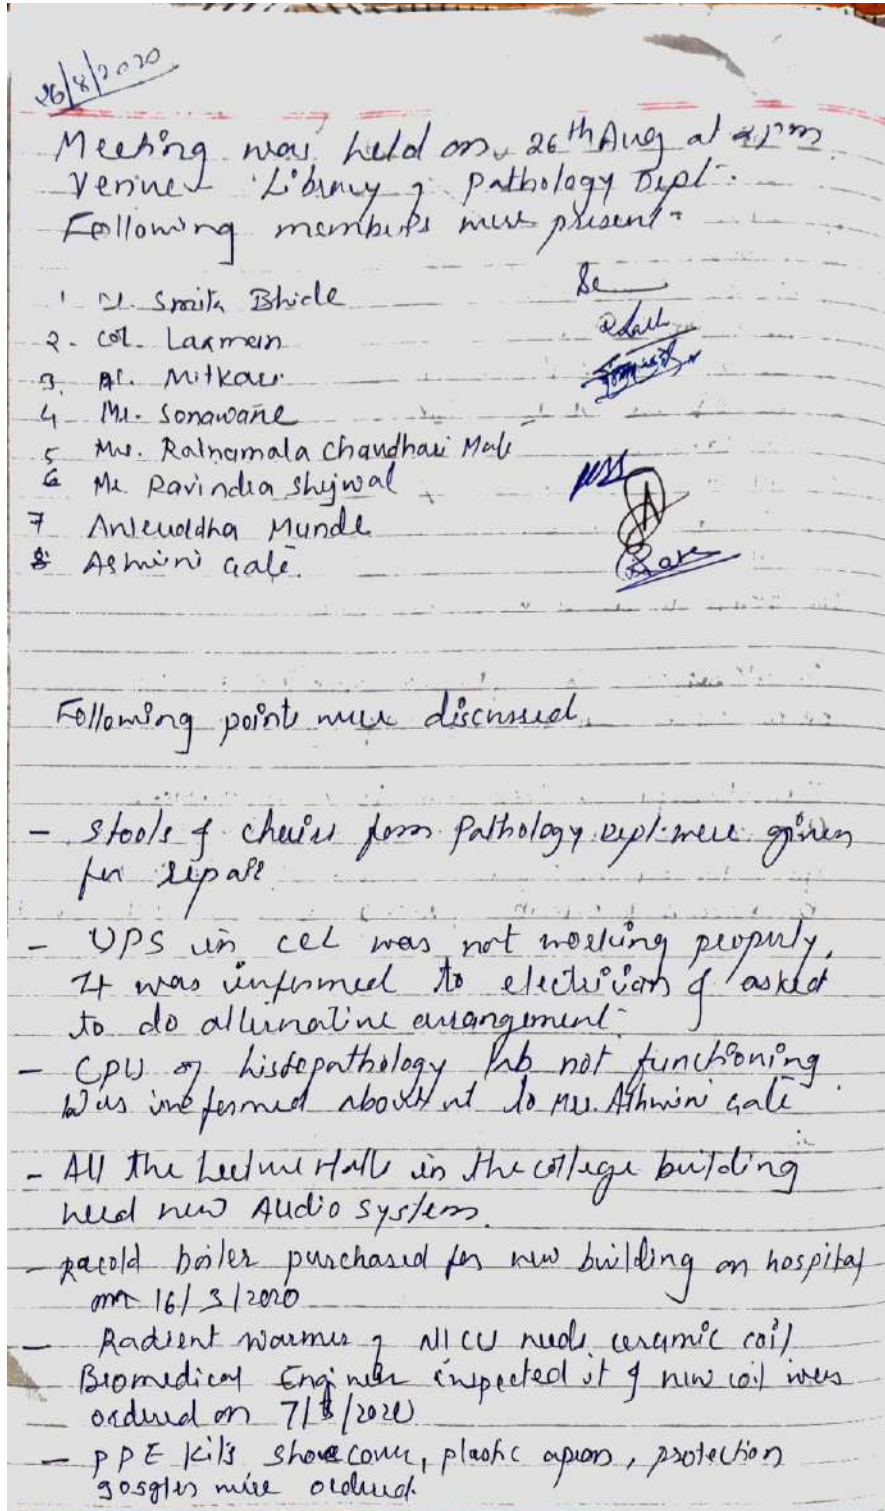 26/8/2020
Meeting was held on 26th Aug at 2 pm
Venue - Library of Pathology Dept.
Following members were present -
1 Dr. Smita Bhide
2. Col. Laxman
3. Dr. Mitkari
4 Mr. Sonawane
5 Mrs. Ratnamala Chaudhari
6 Mr Ravindra Shejwal
7 Anieuddha Munde
8 Ashwini Gale.
Following points were discussed
- Stools & chairs from Pathology Dept. were given
for repair
- UPS in CCL was not working properly.
It was informed to electrician & asked
to do alternative arrangement.
- CPU of histopathology lab not functioning
was informed about it to Mrs. Ashwini Gale
- All the Lecture Halls in the college building
need new Audio system.
- Racold boiler purchased for new building on hospital
on 16/3/2020
- Radient warmer of NICU needs ceramic coil
Biomedical Engineer inspected it & new coil was
ordered on
- PPE kits shoe cover, plastic apron, protection
gosgles were ordered.